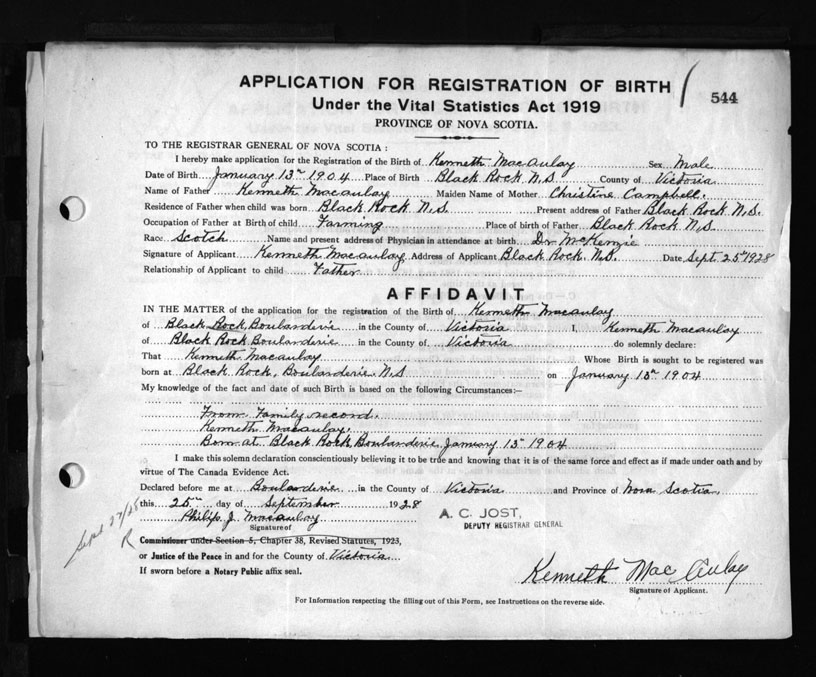 APPLICATION FOR REGISTRATION OF BIRTH / 544
Under the Vital Statistics Act 1919
PROVINCE OF NOVA SCOTIA.
TO THE REGISTRAR GENERAL OF NOVA SCOTIA :
I hereby make application for the Registration of the Birth of Kenneth MacAulay Sex Male
Date of Birth January 13th 1904 Place of Birth Black Rock N.S. County of Victoria
Name of Father Kenneth Macaulay Maiden Name of Mother Christine Campbell.
Residence of Father when child was born Black Rock N.S. Present address of Father Black Rock N.S.
Occupation of Father at Birth of child Farming Place of birth of Father Black Rock N.S
Race Scotch Name and present address of Physician in attendance at birth Dr McKenzie
Signature of Applicant Kenneth Macaulay Address of Applicant Black Rock. N.S. Date Sept. 25th 1928
Relationship of Applicant to child Father
AFFIDAVIT
IN THE MATTER of the application for the registration of the Birth of Kenneth Macaulay
of Black Rock, Boularderie in the County of Victoria I, Kenneth Macaulay
of Black Rock Boularderie in the County of Victoria do solemnly declare:
That Kenneth Macaulay Whose Birth is sought to be registered was
born at Black Rock, Boularderie N.S on January 13th 1904
My knowledge of the fact and date of such Birth is based on the following Circumstances:–
From Family record.
Kenneth Macaulay.
Born at Black Rock Boularderie January 13th 1904
I make this solemn declaration conscientiously believing it to be true and knowing that it is of the same force and effect as if made under oath and by
virtue of The Canada Evidence Act.
Declared before me at Boularderie in the County of Victoria and Province of Nova Scotia
this 25th day of September 1928
Philip J. Macaulay
Signature of
A. C. JOST,
DEPUTY REGISTRAR GENERAL
Sept 27/28
R
Commissioner under Section 5, Chapter 38, Revised Statutes, 1923,
or Justice of the Peace in and for the County of Victoria
If sworn before a Notary Public affix seal.
Kenneth MacAulay
Signature of Applicant.
For Information respecting the filling out of this Form, see Instructions on the reverse side.